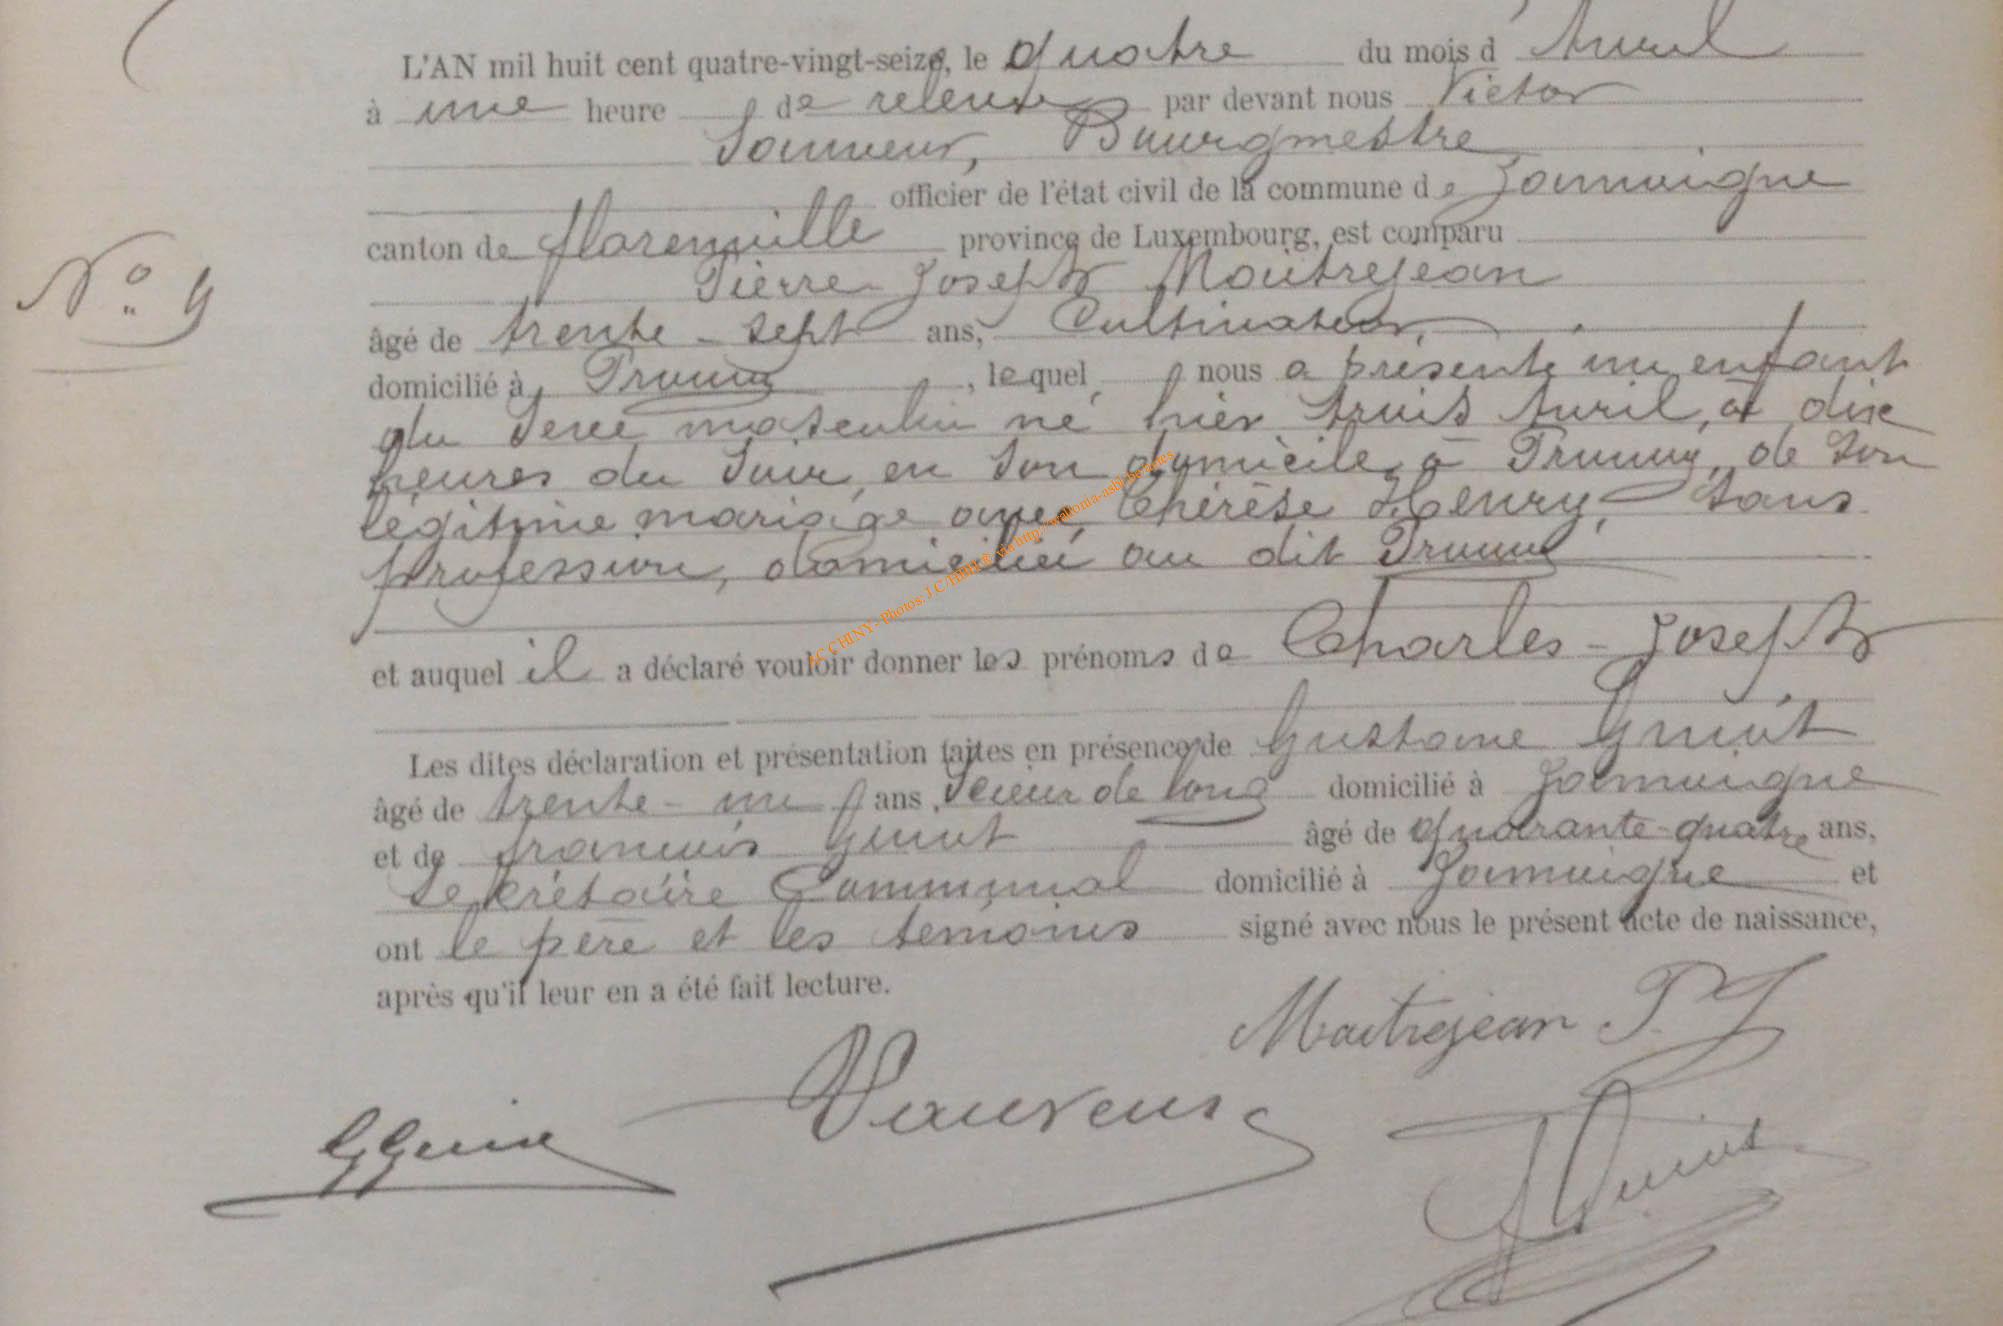 L'AN mil huit cent quatre-vingt-seize, le quatre du mois d'Avril
à une heure de relevée par devant nous Victor
Sauveur, Bourgmestre
officier de l'état civil de la commune de Jamoigne
canton de florenville province de Luxembourg, est comparu
Pierre Joseph Maitrejean
N° 9
âgé de trente-sept ans, Cultivateur,
domicilié à Prouvy, lequel nous a présenté un enfant
du sexe masculin né hier trois Avril, à dix
heures du soir, en son domicile à Prouvy, de son
légitime mariage avec Thérèse Henry, sans
profession, domiciliée au dit Prouvy
et auquel il a déclaré vouloir donner les prénoms de Charles-Joseph
Les dites déclaration et présentation faites en présence de Gustave Guiot
âgé de trente-un ans, scieur de long domicilié à Jamoigne
et de françois Guiot âgé de quarante-quatre ans,
secrétaire Communal domicilié à Jamoigne et
ont le père et les témoins signé avec nous le présent acte de naissance,
après qu'il leur en a été fait lecture.
Maitrejean P. J
Sauveur